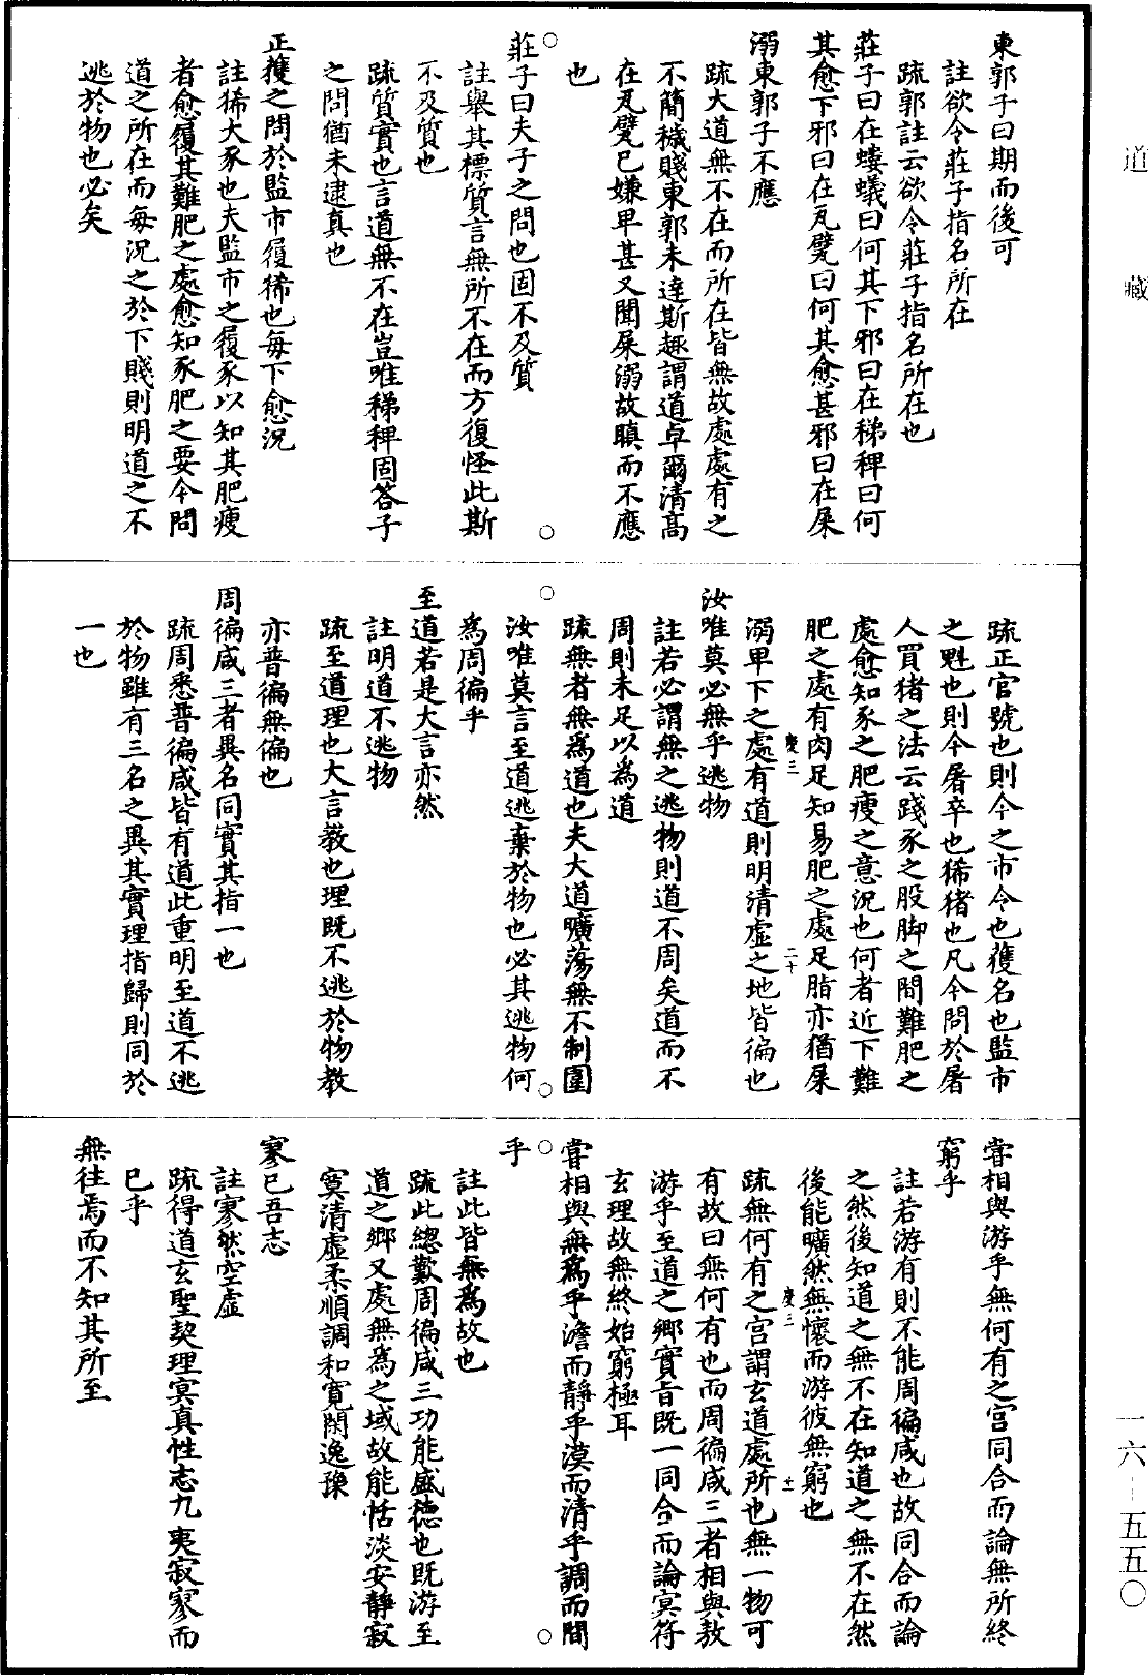 東郭子曰期而後可
註欲令莊子指名所在
疏郭註云欲令莊子指名所在也
莊子曰在螻蟻曰何其下邪曰在稊稗曰何
其愈下邪曰在瓦甓曰何其愈甚邪曰在屎
溺東郭子不應
疏大道無不在而所在皆無故處處有之
不簡穢賤東郭未達斯趣謂道卓爾清高
在瓦甓已嫌卑甚又聞屎溺故瞋而不應
也
莊子曰夫子之問也固不及質
註舉其標質言無所不在而方復怪此斯
不及質也
疏質實也言道無不在豈唯稊稗固答子
之問猶未逮真也
正擭之問於監市履狶也每下愈況
註狶大豕也夫監市之履豕以知其肥瘦
者愈履其難肥之處愈知豕肥之要今問
道之所在而每況之於下賤則明道之不
逃於物也必矣
疏正官號也則今之市令也擭名也監市
之魁也則今屠卒也狶猪也凡今問於屠
人買猪之法云踐豕之股脚之間難肥之
處愈知豕之肥瘦之意況也何者近下難
肥之處有肉足知易肥之處足脂亦猶屎
慶三
二十
溺卑下之處有道則明清虛之地皆徧也
汝唯莫必無乎逃物
註若必謂無之逃物則道不周矣道而不
周則未足以為道
疏無者無為道也夫大道曠蕩無不制圍
汝唯莫言至道逃棄於物也必其逃物何
為周徧乎
至道若是大言亦然
註明道不逃物
疏至道理也大言教也理既不逃於物教
亦普徧無偏也
周徧咸三者異名同實其指一也
疏周悉普徧咸皆有道此重明至道不逃
於物雖有三名之異其實理指歸則同於
一也
嘗相與游乎無何有之宮同合而論無所終
窮乎
註若游有則不能周徧咸也故同合而論
之然後知道之無不在知道之無不在然
後能曠然無懷而游彼無窮也
慶三
十一
疏無何有之宮謂玄道處所也無一物可
有故曰無何有也而周徧咸三者相與敖
游乎至道之鄉實旨既一同合而論冥符
玄理故無終始窮極耳
嘗相與無為乎澹而靜乎漠而清乎調而閒
乎
註此皆無為故也
疏此總歎周徧咸三功能盛德也既游至
道之鄉又處無為之域故能恬淡安靜寂
寞清虛柔順調和寬閑逸豫
寥已吾志
註寥然空虛
疏得道玄聖契理冥真性志九夷寂寥而
已乎
無往焉而不知其所至
道藏
一六—五五〇